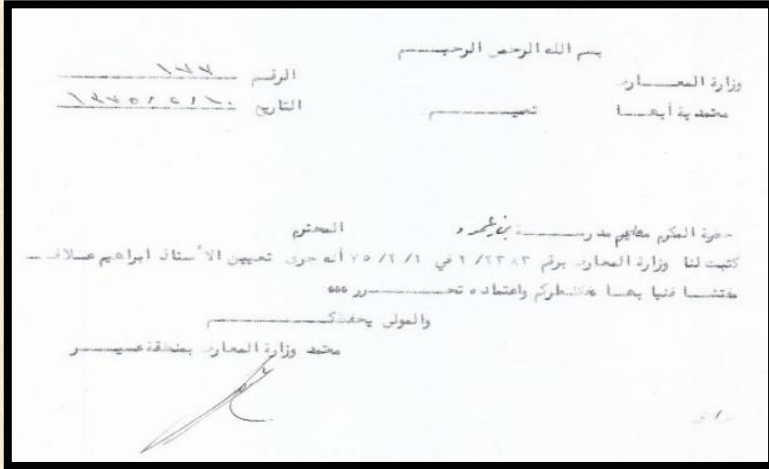 بسم الله الرحمن الرحيم
وزارة المعارف
الرقم ١٧٧
معتمدية أبها
تعميم
التاريخ ١٣٧٥/٢/١٠
حضرة المكرم مدرسة بني عمرو المحترم
كتبت لنا وزارة المعارف برقم ٢/٢٣٨٣ في ٧٥/٢/١ أنه جرى تعيين الأستاذ ابراهيم علاف
مفتشا فنيا بها واعتماده تحرر
والمولى يحفظكم
معتمد وزارة المعارف بمنطقة عسير